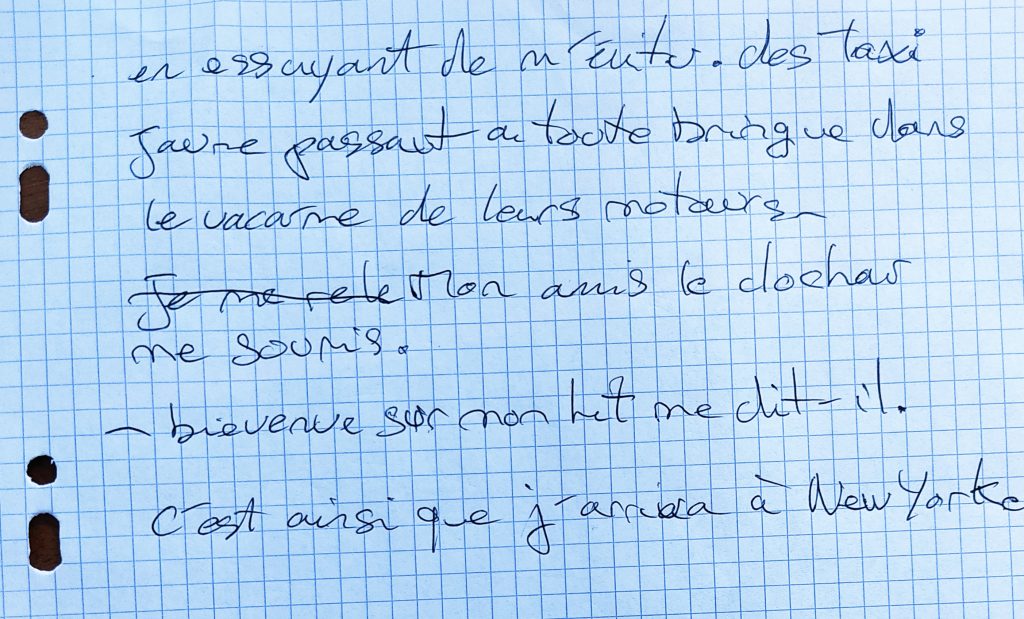 en essayant de m'éviter. des Taxi
Jaune passait a toute bringue dans
le vacarme de leurs moteurs
Je me rele Mon amis le clochar
me souris.
– bievenue sur mon lit me dit-il.
C'est ainsi que j'arriva à New Yorke